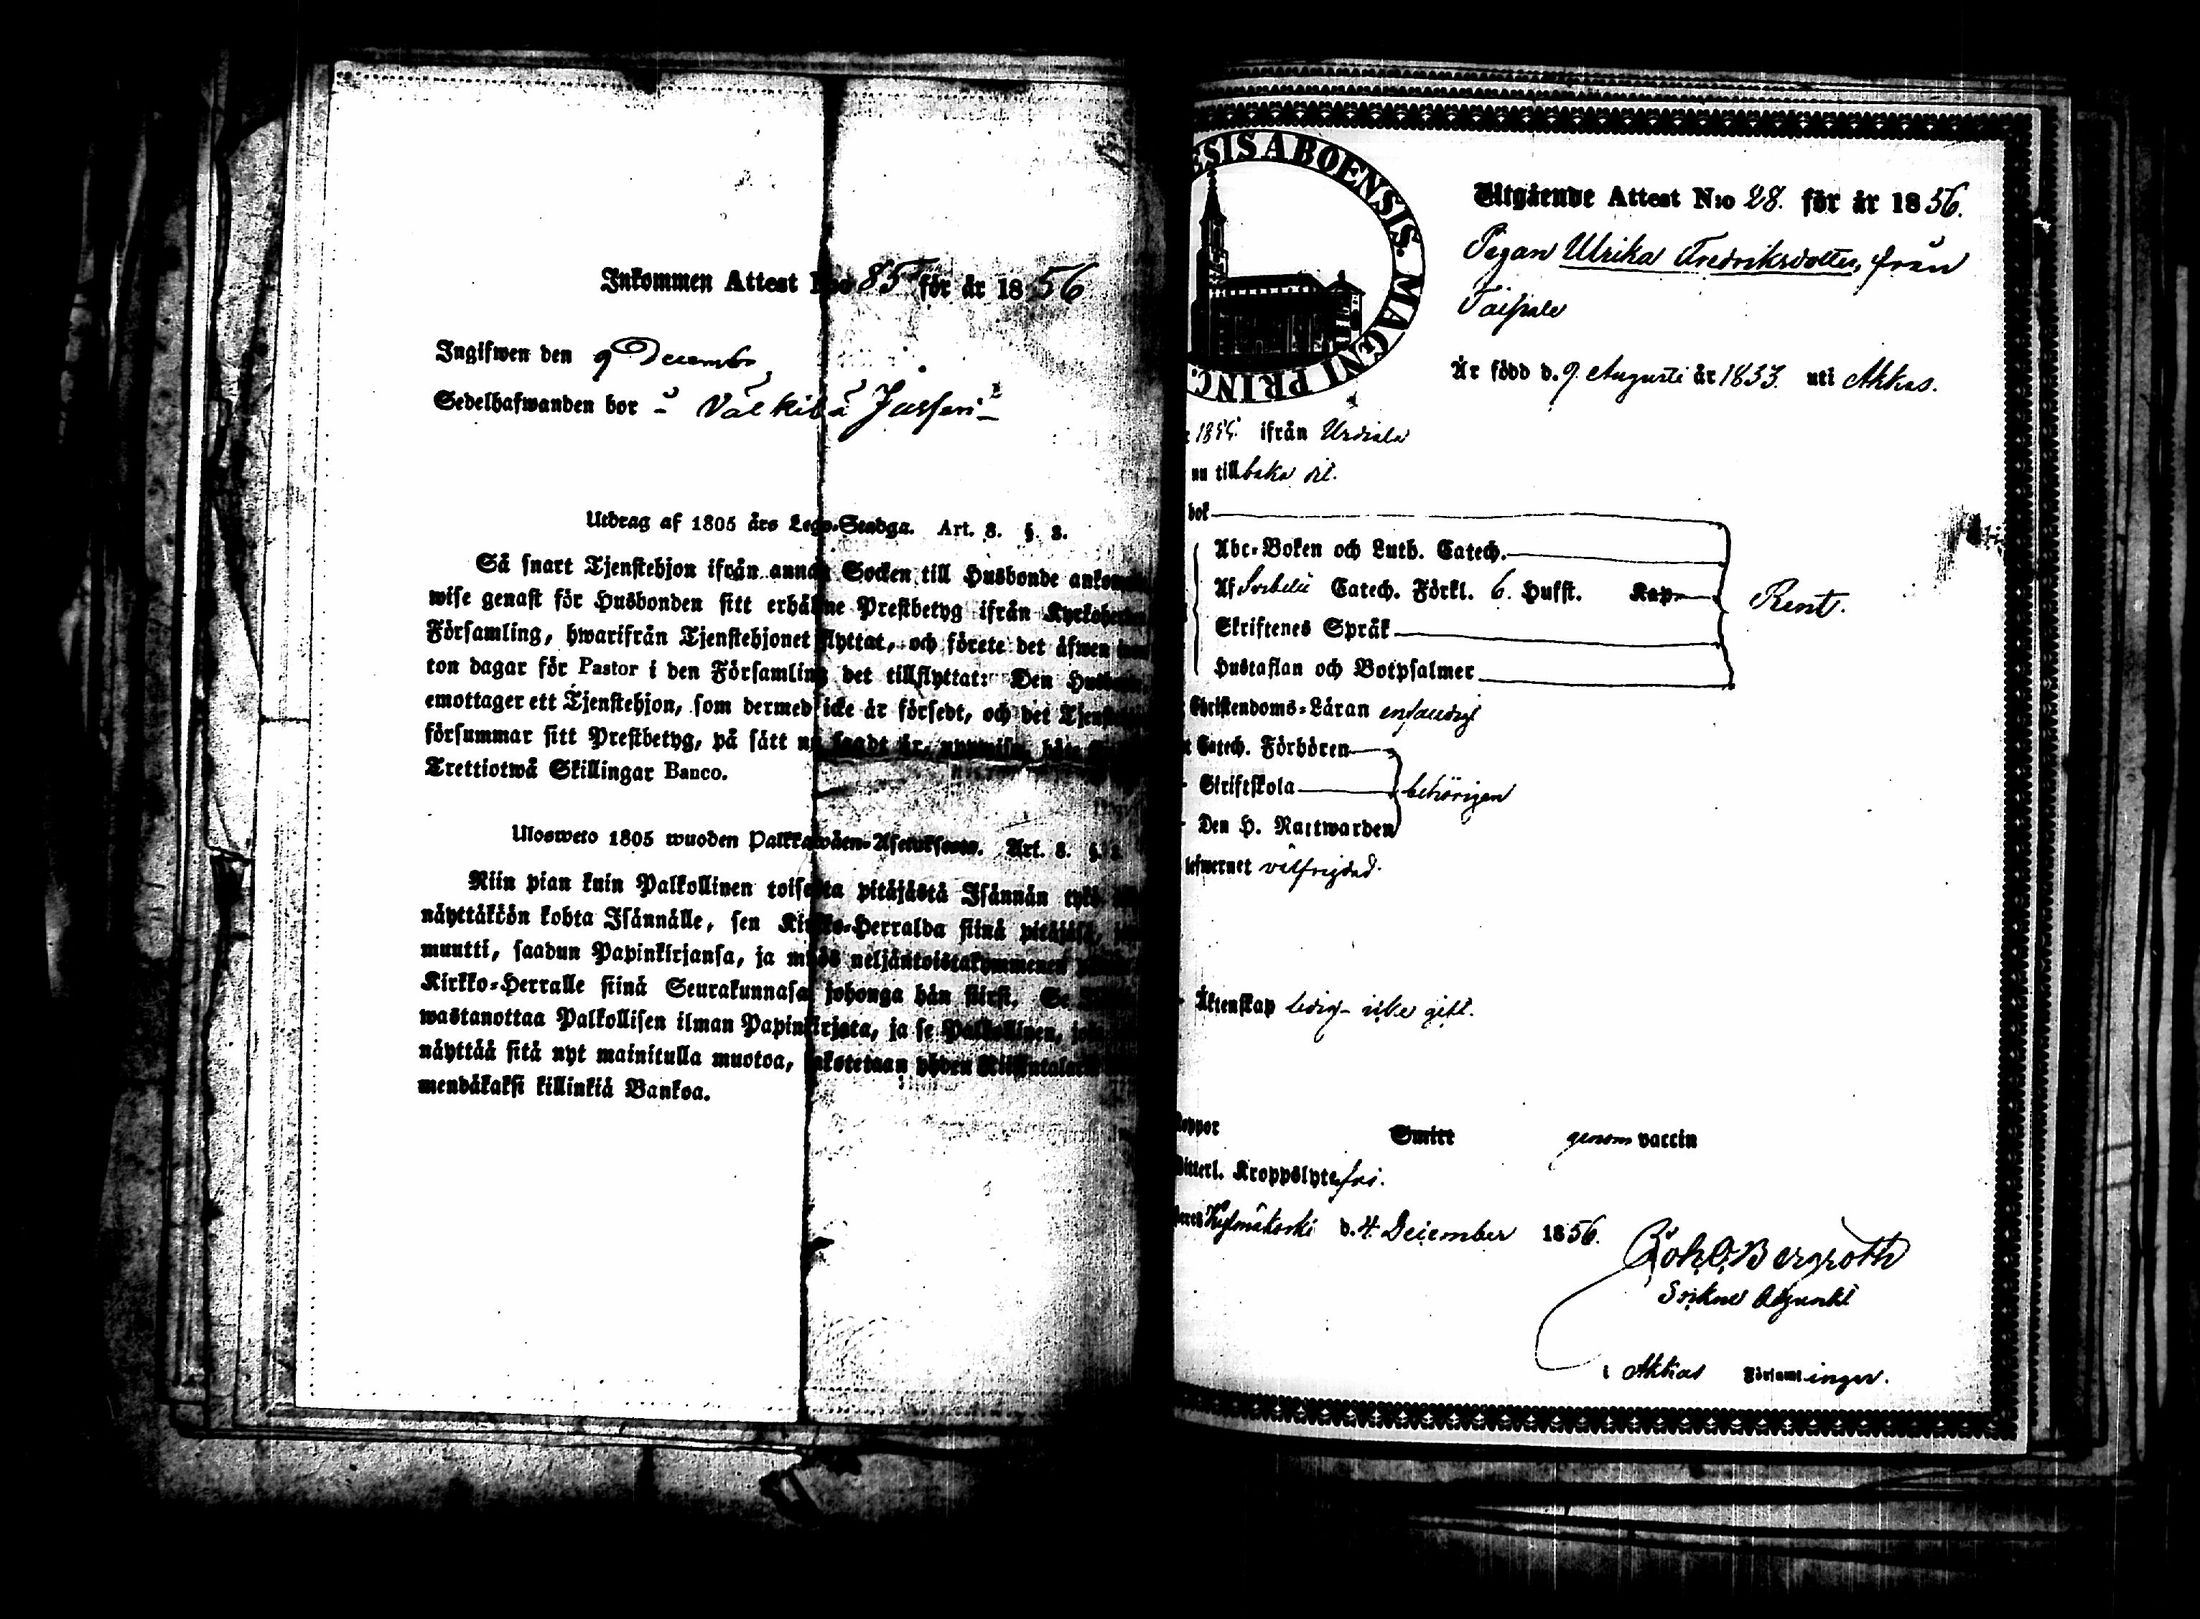 Inkommen Attest N:o 85 för år 1856
Ingifwen den 9 Decembr
Sedelhafwanden bor i Välkilä Jussi
Utdrag af 1805 års Lego-Stadga. Art. 8. §. 2.
Så snart Tjenstehjon ifrån annan Socken till Husbonde
wise genast för Husbonden sitt erhållne Prestbetyg ifrån
Församling, hwarifrån Tjenstehjonet flyttat, och förete det äfwen
ton dagar för Pastor i den Församling det tillflyttat: Den
emottager ett Tjenstehjon, som dermed icke är försedt, och det
försummar sitt Prestbetyg, på sätt nu sagdt är, uppwisa,
Trettiotwå Skillingar Banco.
Ulosweto 1805 wuoden Palkkawäen-Asetuksesta. Art. 8. §. 2.
Niin pian kuin Palkollinen toisesta pitäjästä Isännän tykö
näyttäkön kohta Isännälle, sen Kirkko-Herralda siinä pitäjäsä,
muutti, saadun Papinkirjansa, ja myös neljäntoistakymmenen
Kirkko-Herralle siinä Seurakunnasa johonga hän siirsi. Se
wastanottaa Palkollisen ilman Papinkirjata, ja se Palkollinen,
näyttää sitä nyt mainitulla muotoa, sakotetaan yhden
mendäkaksi killinkiä Bankoa.
ESIS ABOENSIS. MAGNI PRINC.
Utgående Attest N:o 28. för år 1856.
Pigan Ulrika Fredriksdotter, från
Taipale
Är född d. 9 Augusti år 1833. uti Akkas.
1855 ifrån Urdiala
nu tillbaka dit.
bok
Abc-Boken och Luth. Catech.
Af Svebelii Catech. Förkl. 6. Hufst. Kap.
Skriftenes Språk
Hustaflan och Botpsalmer
Rent.
Christendoms-Läran enfaldigt
Catech. Förhören
Skriftskola
Den H. Nattwarden
behörigen
lefwernet välfrejdad.
Äktenskap ledig - icke gift.
koppor Smitt genom vaccin
Kroppslyte fri.
Kylmäkoski d. 4 December 1856.
Joh. O. Bergroth
Sockne Adjunkt
i Akkas Församlinger.